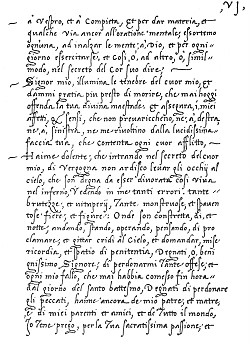 VJ
à Vespro, et à Compieta, et per dar materia, et
qualche via ancor all'oration mentale; essortimo
ognuna, ad inalzar le mente; à, Dio, et per ogni
giorno essercitarse, et Così, ò, ad altro, ò, simil
modo, nel secreto del Cor suo dire;
Signor mio, illumina le tenebre del cuor mio, et
dammi gratia piu presto di morire, che mai hoggi
offenda la tua divina maestade, et assegura, i miei
affetti, et sensi, che non prevarichino, nè, a destra,
ne, a, sinistra, ne me rivoltino dalla lucidissima
faccia tua, che contenta, ogni cuor afflitto,
Haime dolente, che intrando nel secreto del cuor
mio, di Vergogna non ardisco levar gli occhi al
cielo, che son digna da esser divorata così viva,
nel inferno, Vedendo in me tanti errori, tante
bruttezze, et vituperij, Tante monstruose, et spaven
tose fiere; et figure; Onde son constretta, di, et
notte, andando, stando, operando, pensando, di pro
clamare, et gittar cridi al Cielo, et domandar, mise
ricordia, et spatio di penitentia, Degnati, ò, beni
gnissimo, Signore, di perdonarmi Tante offese, et
ogni mio fallo, che mai habbia comesso fin hora
dal giorno del santo battesmo, Degnati di perdonare
gli peccati, haime ancora, de mio patre, et matre,
e di miei parenti et amici, et de Tutto il mondo,
Io Tene prego, per la Tua sacratissima passione, et